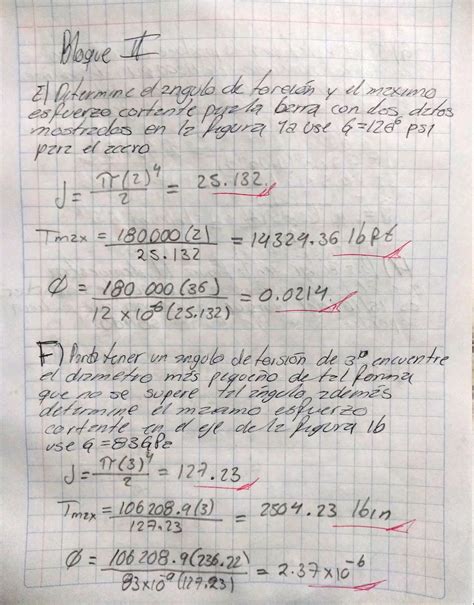 Bloque II
E) Determine el angulo de torsión y el maximo
esfuerzo cortante para la barra con los datos
mostrados en la figura 1a use G=12x10⁶ psi
para el acero
J = π(2)⁴/2 = 25.132
Tmax = 180000(2)/25.132 = 14324.36 lbft
Φ = 180 000(36)/12 x10⁻⁶(25.132) = 0.0214
F) Para tener un angulo de torsión de 3° encuentre
el diametro más pequeño de tal forma
que no se supere tal angulo, además
determine el maximo esfuerzo
cortante en el eje de la figura 1b
use G=83GPa
J = π(3)⁴/2 = 127.23
Tmax = 106208.9(3)/127.23 = 2504.23 lbin
Φ = 106208.9(236.22)/83x10⁻⁹(127.23) = 2.37x10⁻⁶